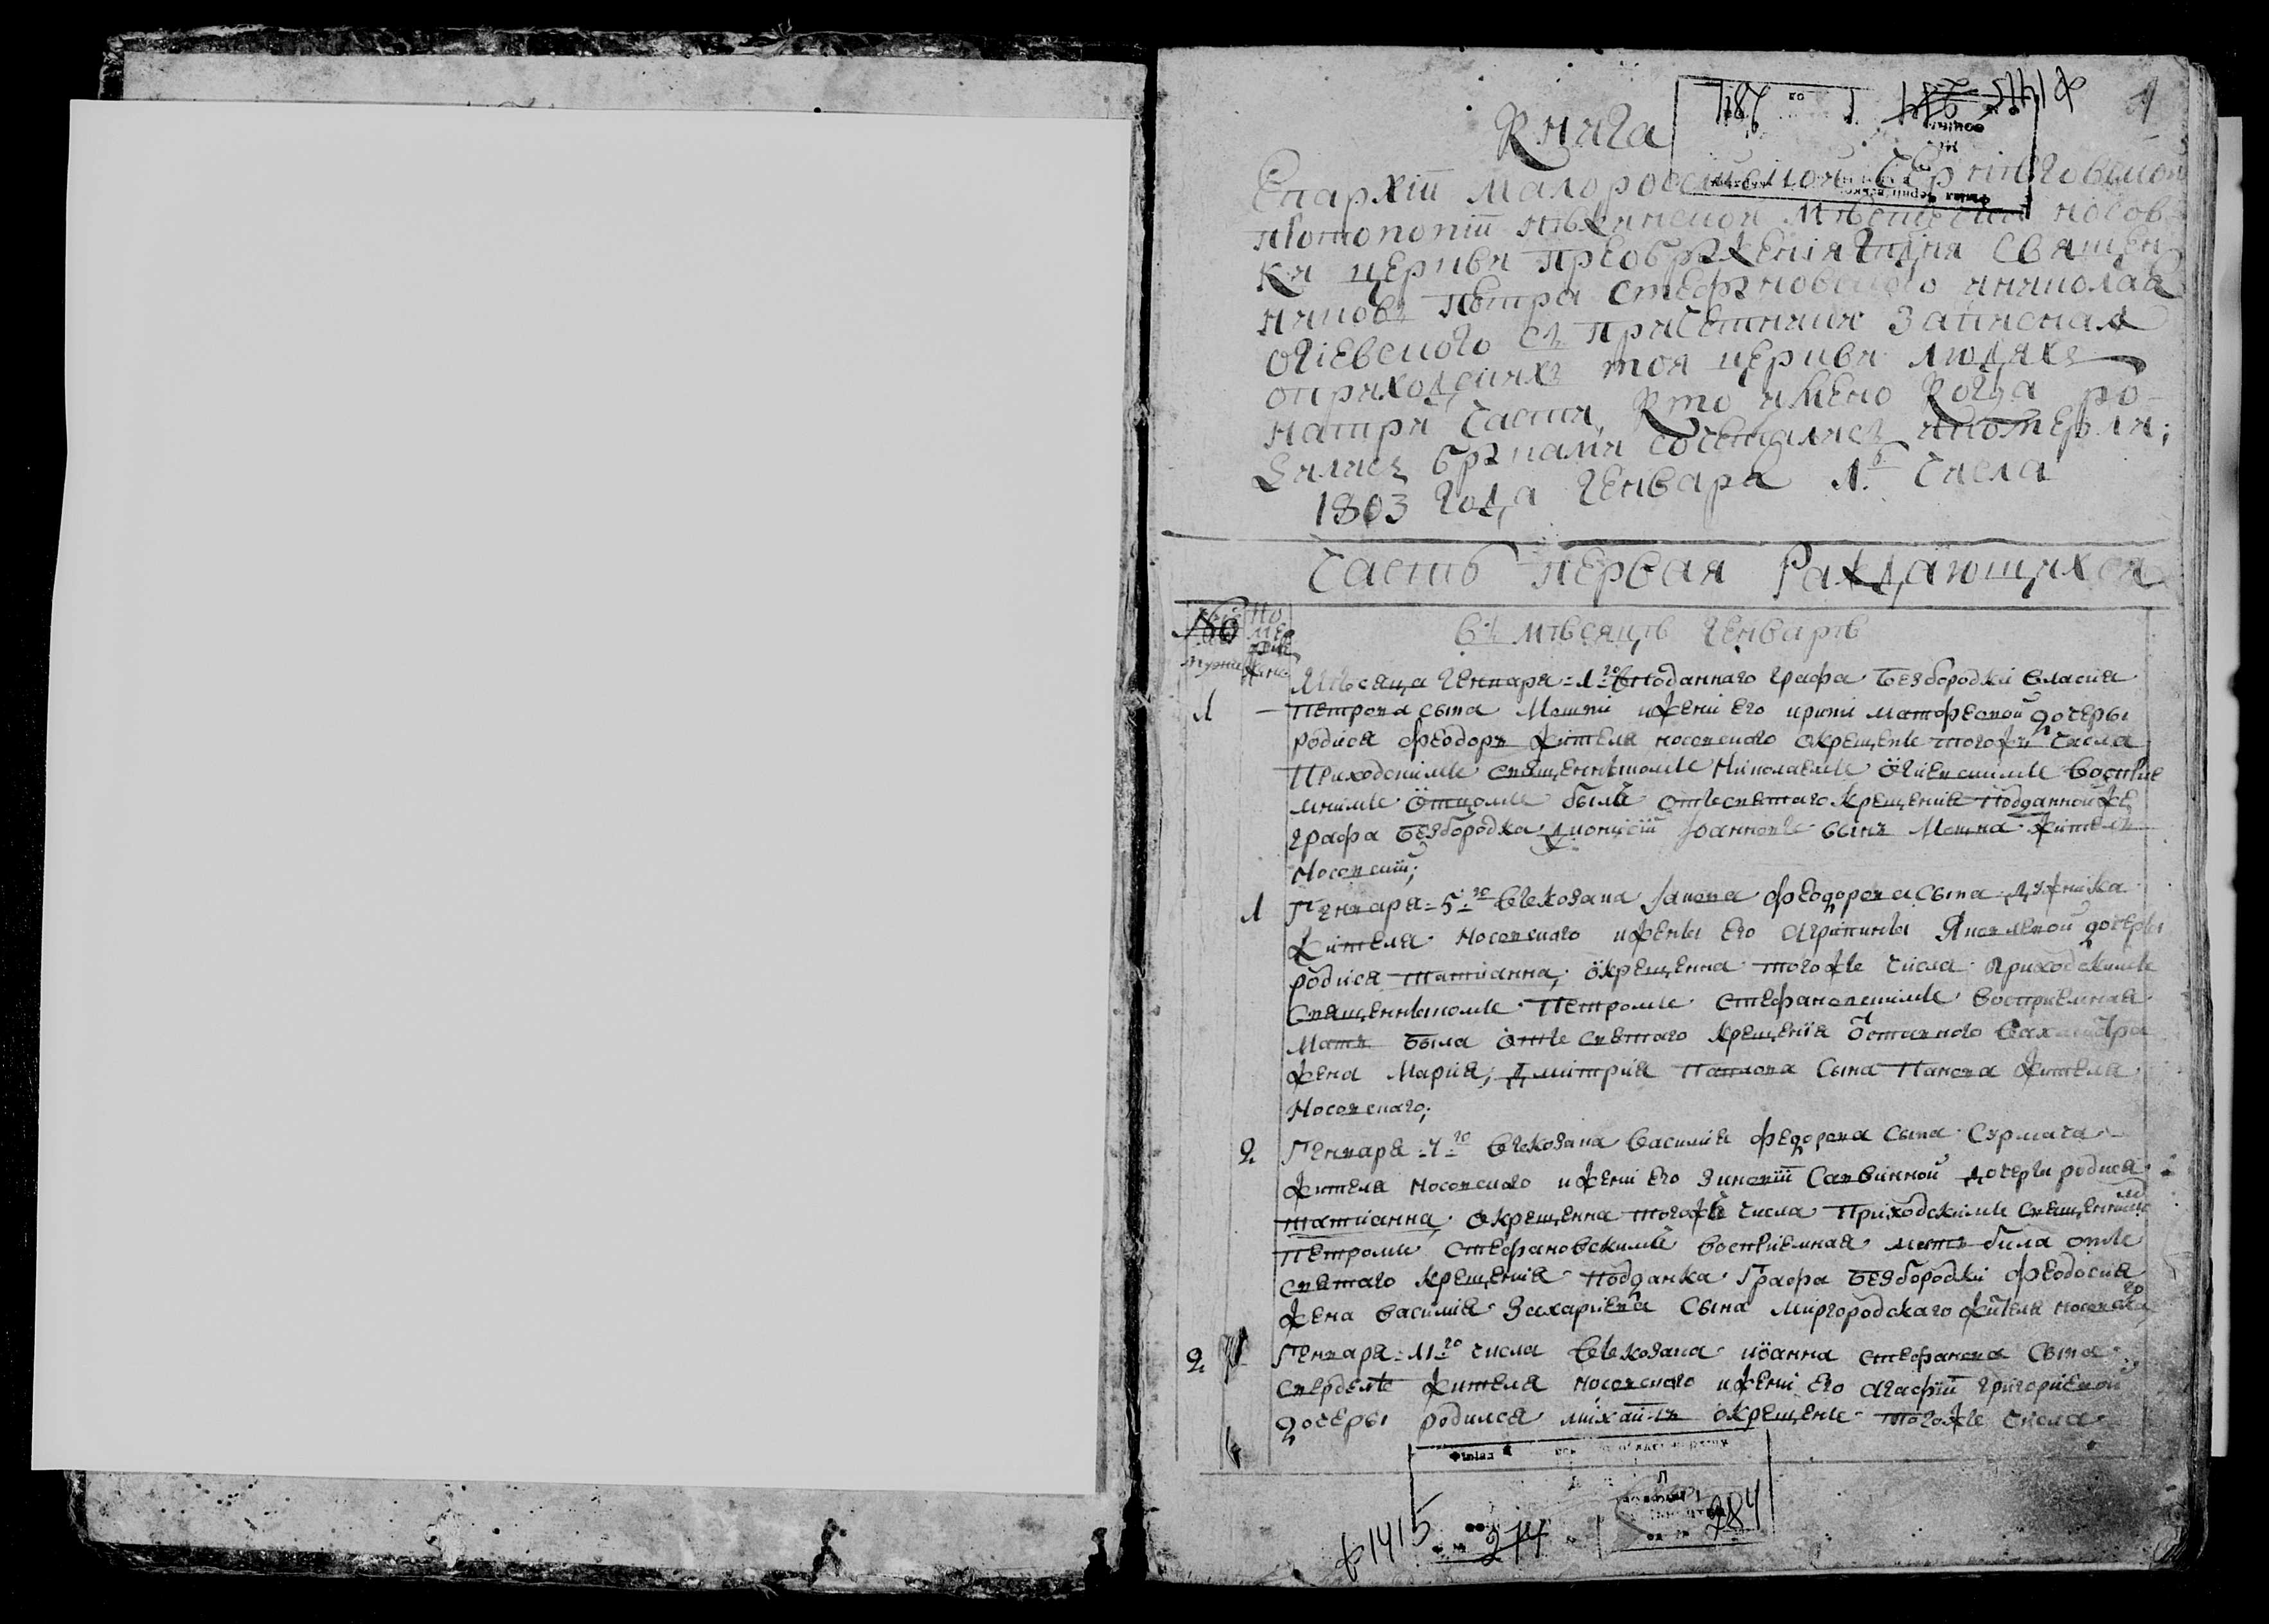 1
Книга
Епархіи Малоросейской Черниговской
протопопіи Нѣжинской Мѣстечка Носов-
ки церкви преображенія Гдня Священ-
никовъ Петра Стефановского и Николая
Огіевского съ причетники записная
оприходскихъ тоя церкви людяхъ
натри части, Кто имено когда ро-
дились бракамы сочетались ипомерли;
1803 года Генвара 1. числа
Часть первая Раждающихся
Но
мер
женс
въ мѣсяцѣ Генварѣ
Мѣсяца Генваря = 1 го Вподаннаго графа Безбородки Власия
1 — Петрова сына Мошни ижени его ирини Матфеевой дочеры
родися Феодоръ жителя носовского окрещенъ тогожъ числа
Приходскимъ священникомъ Николаемъ Огіевскимъ воспріе
мнимъ Отцомъ былъ отъ светаго крещенія Подданной же
графа Безбородка Дионисій Іоанновъ сынъ Мошна житель
Носовский;
1 Генваря = 5 го въкозака Іакова Феодорова сына
жителя Носовского ижены его Агрипины Яковлевой дочеры
родися Татианна, окрещенна тогоже числа Приходскимъ
Священникомъ Петромъ Стефановскимъ восприемная
Мать была отъ светаго крещенія
жена Мария, Дмитрия Павлова сына Панова жителя
Носовского;
2 Генваря = 7 го въкозака Василия Федорова сына Сурмача
жителя Носовского ижени его Зиновіи Саввинной дочери родися
Татианна, окрещенна тогожъ числа Приходскимъ священником
Петромъ Стефановскимъ воспріемная мать била отъ
светаго крещения Подданка Графа Безбородки Феодосия
жена Василия Захариева сына Миргородскаго жителя носовскаго
2 Генваря = 11 го числа въкозака иоанна Стефанова сына
жителя носовского ижени его Агафіи григориевой
дочеры родился михаилъ окрещенъ тогоже числа
ф1415
274
284